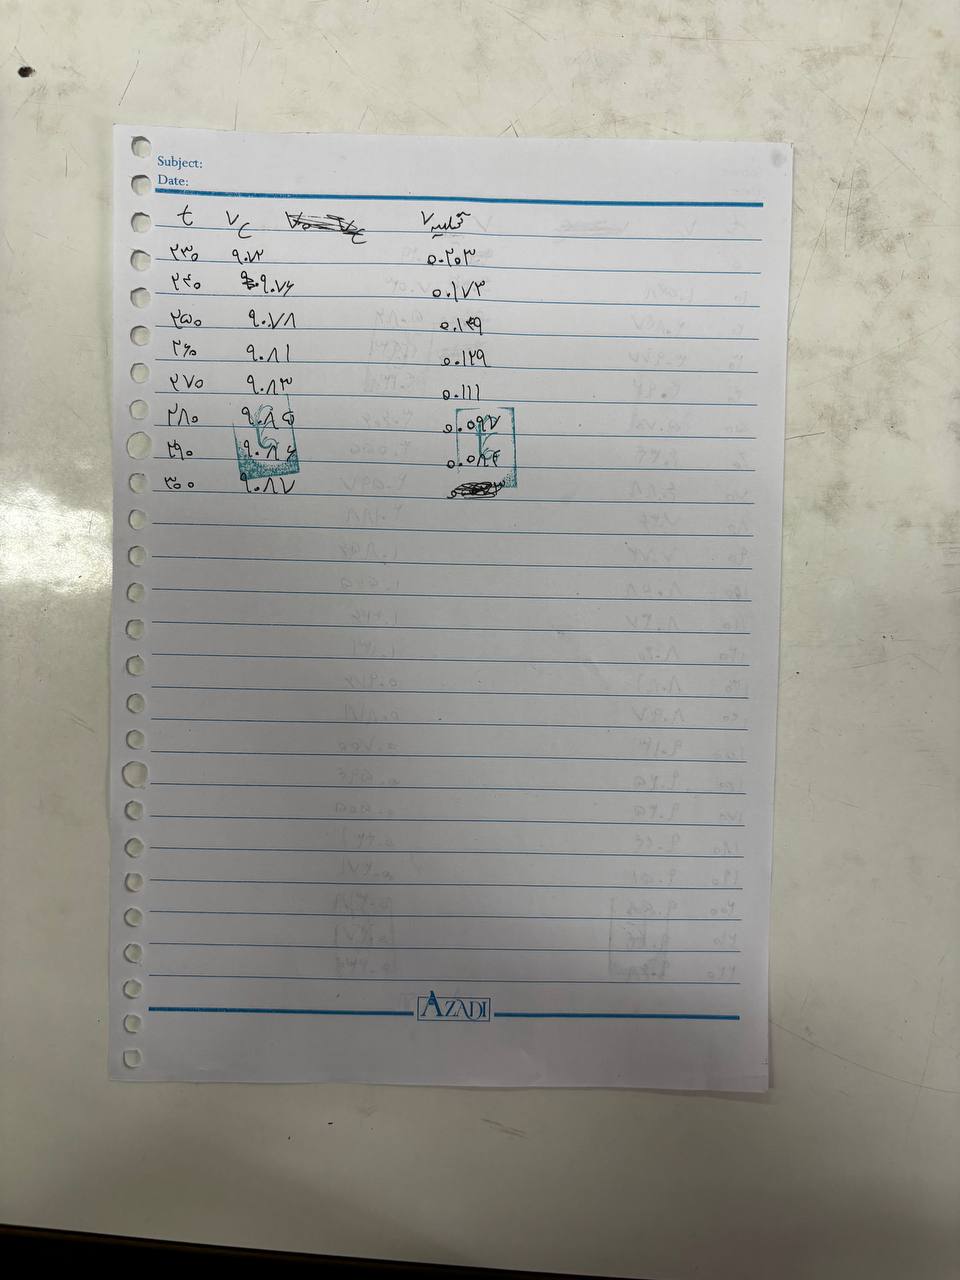 Subject:
Date:
t V_C V تخلیه
۲۳۰ ۹.۷۳ ۰.۲۰۳
۲۴۰ ۹.۷۶ ۰.۱۷۳
۲۵۰ ۹.۷۸ ۰.۱۴۹
۲۶۰ ۹.۸۱ ۰.۱۲۹
۲۷۰ ۹.۸۳ ۰.۱۱۱
۲۸۰ ۹.۸۵ ۰.۰۹۷
۲۹۰ ۹.۸۶ ۰.۰۸۴
۳۰۰ ۹.۸۷
AZADI